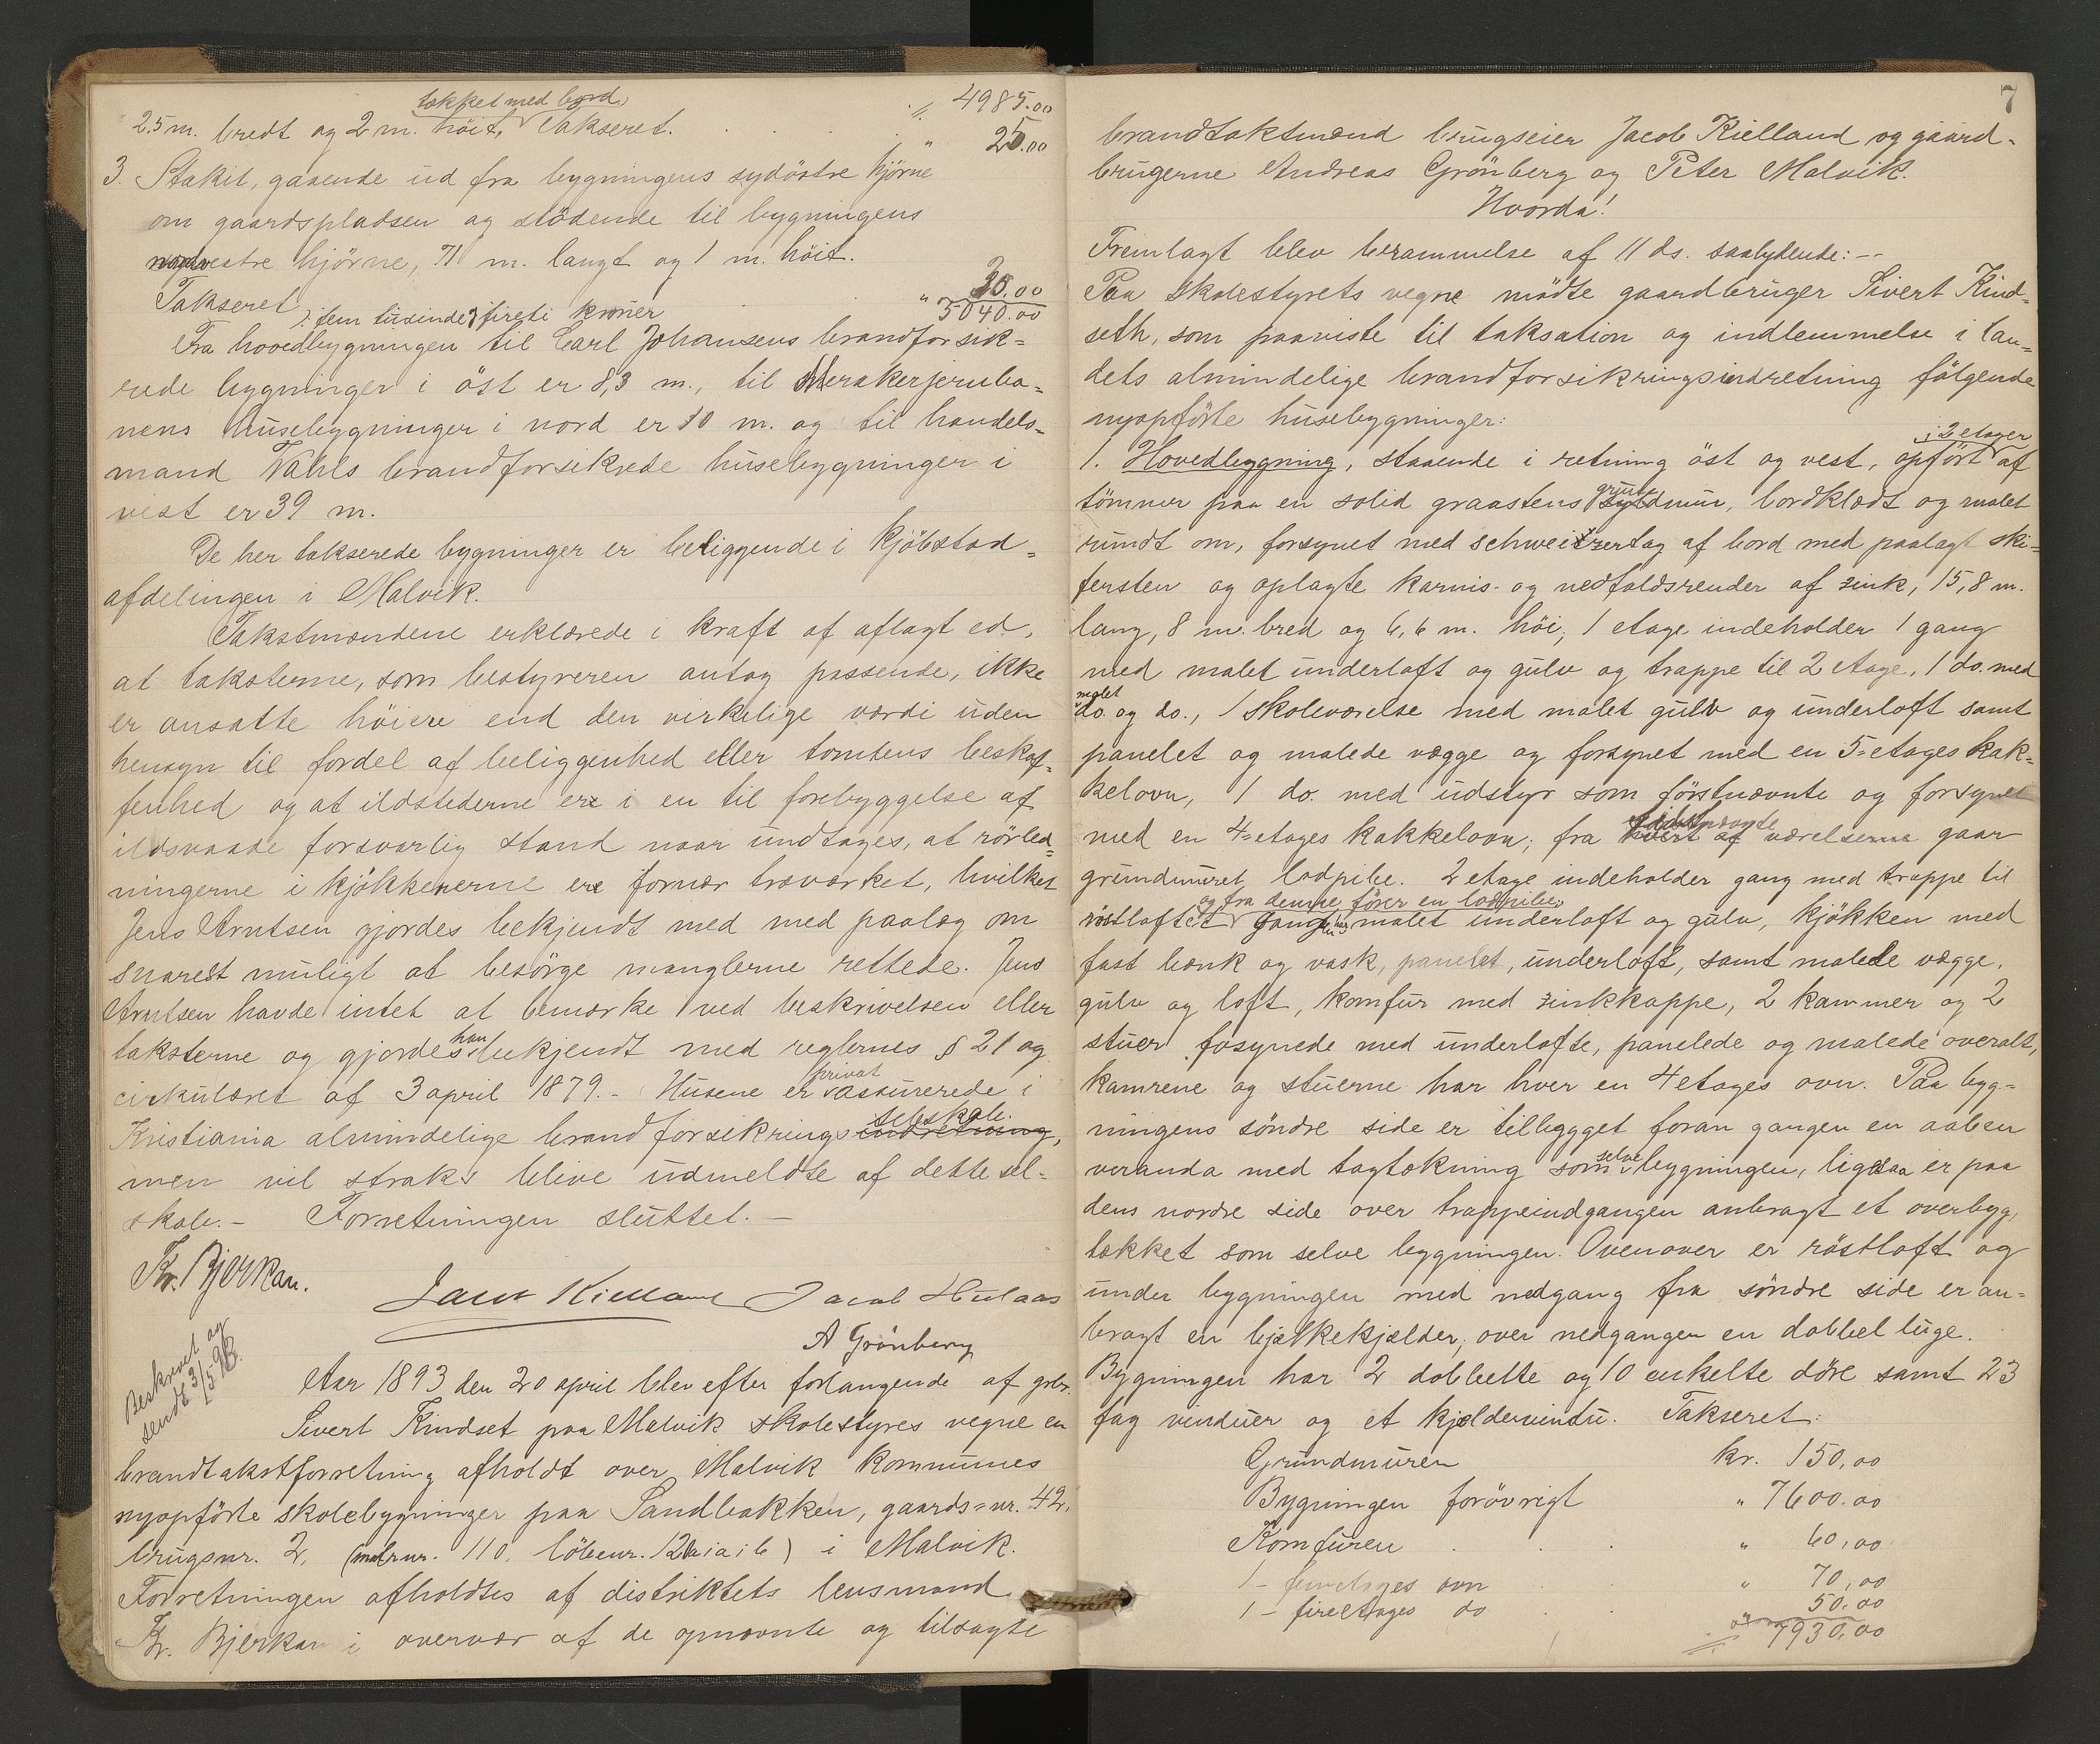 tækket med bord,
2.5 m. bredt og 2 m. höit, Takseret. . . . . " 4985.00
" 25.00
3. Stakit, gaaende ud fra bygningens sydöstre hjörne
om gaardspladsen og stödende til bygningens
nordvestre hjörne, 71 m. langt og 1 m. höit.
Takseret " 30.00
): fem tusinde og fireti kroner " 5040.00
Fra hovedbygningen til Carl Johansens brandforsik=
rede bygninger i öst er 8,3 m., til Merakerjernba=
nens husebygninger i nord er 30 m. og til handels=
mand Vahls brandforsikrede husebygninger i
vest er 39 m.
De her takserede bygninger er beliggende i kjöbstad=
afdelingen i Malvik.
Takstmændene erklærede i kraft af aflagt ed,
at taksterne, som bestyreren antog passende, ikke
er ansatte höiere end den virkelige værdi uden
hensyn til fordel af beliggenhed eller tomtens beskaf=
fenhed og at ildstederne ere i en til forebyggelse af
ildsvaade forsvarlig stand naar undtages, at rörled=
ningerne i kjökkenerne ere fornær træværket, hvilket
Jens Arntsen gjordes bekjendt med med paalæg om
snarest muligt at besörge manglerne rettede. Jens
Arntsen havde intet at bemærke ved beskrivelsen eller
taksterne og gjordes han bekjendt med reglernes § 21 og
cirkulæret af 3 april 1879. - Husene er privat assurerede i
Kristiania almindelige brandforsikringsindretning, selskab.
men vil straks blive udmeldte af dette sel=
skab. - Forretningen sluttet. -
Kr. Bjerkan.
Jacob Kielland Jacob Hulaas
A Grönberg
Beskrevet og
sendt 31/5 93
Aar 1893 den 20 april blev efter forlangende af gbr.
Sivert Kindset paa Malvik skolestyres vegne en
brandtakstforretning afholdt over Malvik kommunes
nyopförte skolebygninger paa Sandbakken, gaards=nr. 42,
brugsnr. 2, (matr.nr. 110, löbenr. 12 a i a i b) i Malvik.
Forretningen afholdtes af distriktets lensmand
Kr. Bjerkan i overvær af de opnævnte og tilsagte
7
brandtaktmænd brugseier Jacob Kielland og gaard-
brugerne Andreas Grönberg og Peter Malvik.
Hvorda!
Fremlagt blev berammelse af 11 ds. saalydende: --
Paa skolestyrets vegne mödte gaardbruger Sivert Kind=
seth, som paaviste til taksation og indlemmelse i lan=
dets almindelige brandforsikringsindretning fölgende
nyopförte husebygninger:
1. Hovedbygning, staaende i retning öst og vest, opfört i 2 etager af
tömmer paa en solid graastens grundmur, bordklædt og malet
rundt om, forsynet med schweitzertag af bord med paalagt ski=
fersten og oplagte karnis- og nedfaldsrender af zink, 15,8 m.
lang, 8 m. bred og 6,6 m. höi; 1 etage indeholder 1 gang
med malet underloft og gulv og trappe til 2 etage, 1 do. med
malet do. og do., 1 skoleværelse med malet gulv og underloft samt
panelet og malede vægge og forsynet med en 5=etages kak=
kelovn, 1 do. med udstyr som förstnævnte og forsynet
med en 4=etages kakkelovn; fra hvert af værelserne gaar
grundmuret lodpibe. 2 etage indeholder gang med trappe til
og fra denne förer en lodpibe,
röstloftet gang malet underloft og gulv, kjökken med
fast bænk og vask, panelet, underloft, samt malede vægge,
gulv og loft, komfur med zinkkappe, 2 kammer og 2
stuer fosynede med underlofte, panelede og malede overalt,
kamrene og stuerne har hver en 4 etages ovn. Paa byg=
ningens söndre side er tilbygget foran gangen en aaben
veranda med tagtækning som selve bygningen, ligesaa er paa
dens nordre side over trappeindgangen anbragt et overbyg,
tækket som selve bygningen. Ovenover er röstloft og
under bygningen med nedgang fra söndre side er an=
bragt en bjælkekjælder, over nedgangen en dobbel luge.
Bygningen har 2 dobbelte og 10 enkelte döre samt 23
fag vinduer og et kjældervindu. Takseret:
Grundmuren kr. 150,00
Bygningen forövrigt " 7600.00
Komfuren . . . " 60,00
1 - femetages ovn . . " 70,00
1 - fireetages do . . " 50,00
7930,00